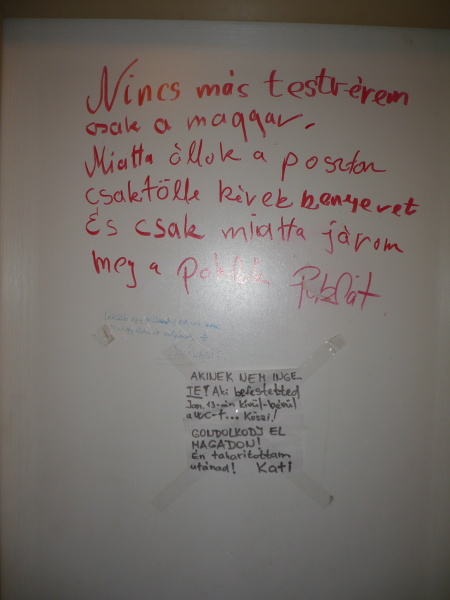 Nincs más testvérem
csak a maggar.
Miatta állok a poszton
csaktölle kèrek kenyeret
És csak miatta járom
meg a poklok
AKINEK NEM INGE..
TE! Aki befestetted
Jan. 13-án kívül-belül
a WC-t... Köszi!
GONDOLKODJ EL
MAGADON!
Én takarítottam
utánad! Kati